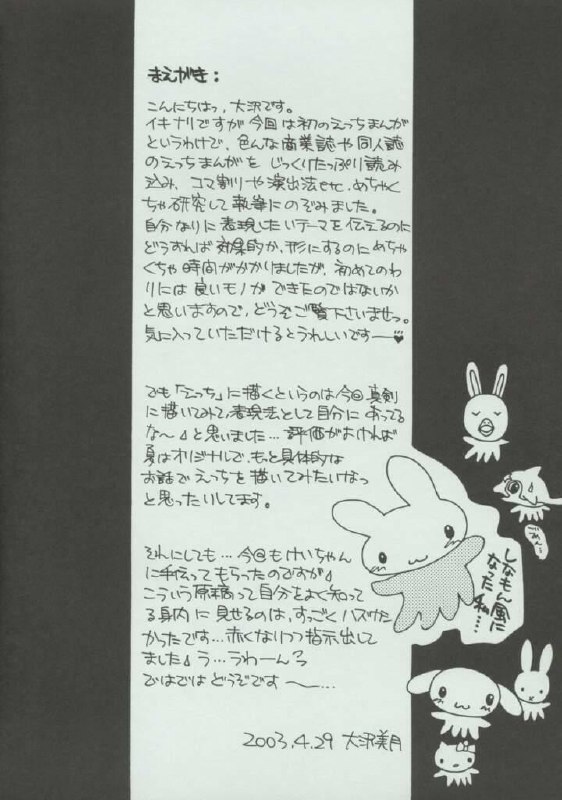 まえがき：
こんにちはっ、大沢です。
イキナリですが今回は初のえっちまんが
というわけで、色んな商業誌や同人誌
のえっちまんがを じっくりたっぷり読み
込み、コマ割りや演出法etc、めちゃく
ちゃ研究して執筆にのぞみました。
自分なりに表現したいテーマを伝えるのに
どうすれば効果的か、形にするのにめちゃ
くちゃ時間がかかりましたが、初めてのわ
りには良いモノができたのではないか
と思いますので、どうぞご覧下さいませっ。
気に入っていただけるとうれしいです──♥
でも「えっち」に描くというのは今回真剣
に描いてみて、表現法として自分にあってる
な～♪と思いました…評価がよければ
夏はオリジナルで、もっと具体的な
お話でえっちを描いてみたいなっ
と思ったりしてます。
それにしても…今回もけいちゃん
に手伝ってもらったのですが♪
こういう原稿って自分をよく知って
る身内に見せるのは、すっごくハズかし
かったです…赤くなりつつ指示出して
ました♪う…うわーんっ
ではでは どうぞです ～…
2003.4.29 大沢美月
しなもん風に
なった私…